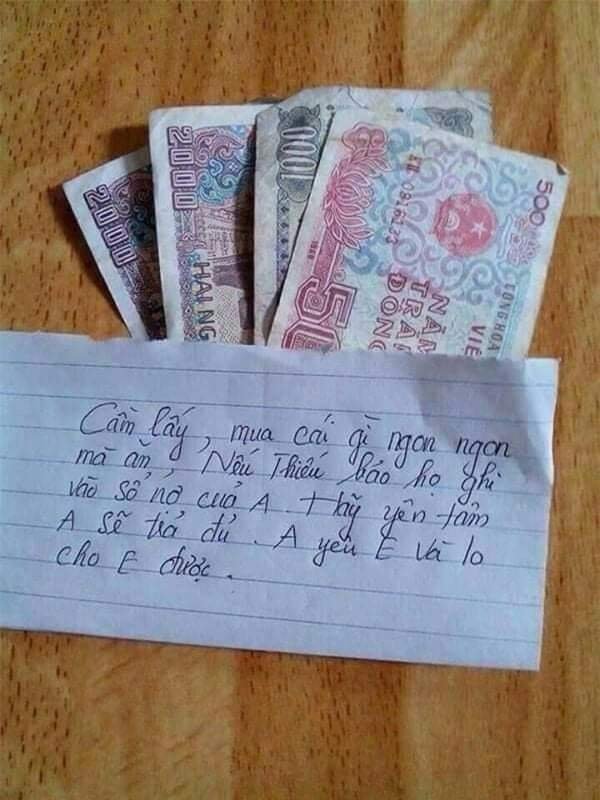 2000
2000
HAI NG
1000
500
KU 0916123
CỘNG HOÀ
VIỆ
NĂM
TRĂM
ĐỒNG
1988
50
Cầm lấy, mua cái gì ngon ngon
mà ăn, Nếu Thiếu báo họ ghi
vào sổ nợ của A. Hãy yên tâm
A sẽ trả đủ. A yêu E và lo
cho E được.